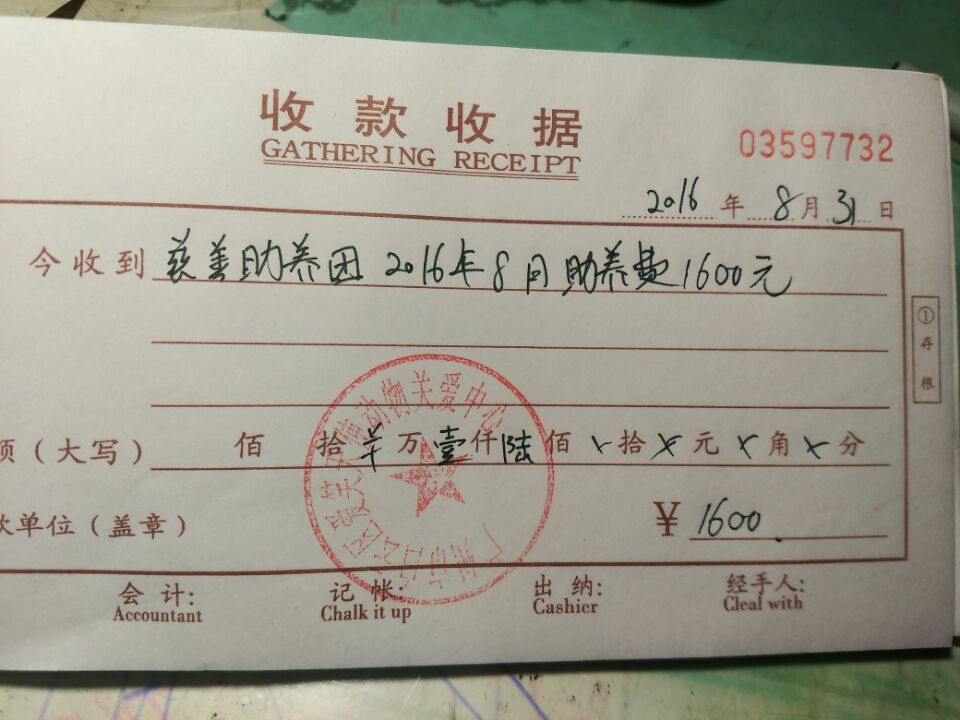 收款收据
GATHERING RECEIPT
03597732
2016年8月31日
今收到 慈善助养团2016年8月助养费1600元
①存根
项(大写) 佰 拾 万壹仟陆佰 拾 元 角 分
¥ 1600
款单位(盖章)
动物关爱中心
会计: 记帐: 出纳: 经手人:
Accountant Chalk it up Cashier Cleal with